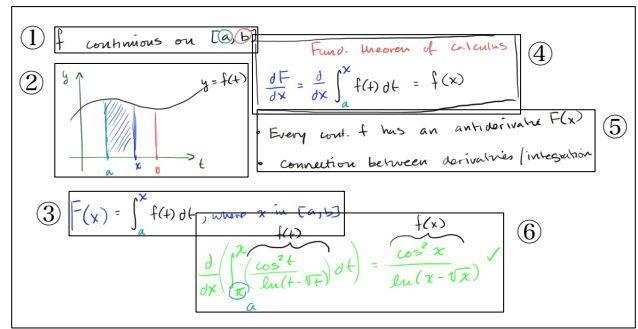 ① f continuous on [a, b]
②
y
y = f(t)
a x b t
③ F(x) = ∫ₐˣ f(t) dt, where x in [a, b]
④
Fund. theorem of calculus
dF/dx = d/dx ∫ₐˣ f(t) dt = f(x)
⑤
• Every cont. f has an antiderivative F(x)
• connection between derivatives/integration
⑥
f(t) f(x)
d/dx (∫_π^x (cos²t / ln(t-√t)) dt) = cos²x / ln(x-√x) ✓
a